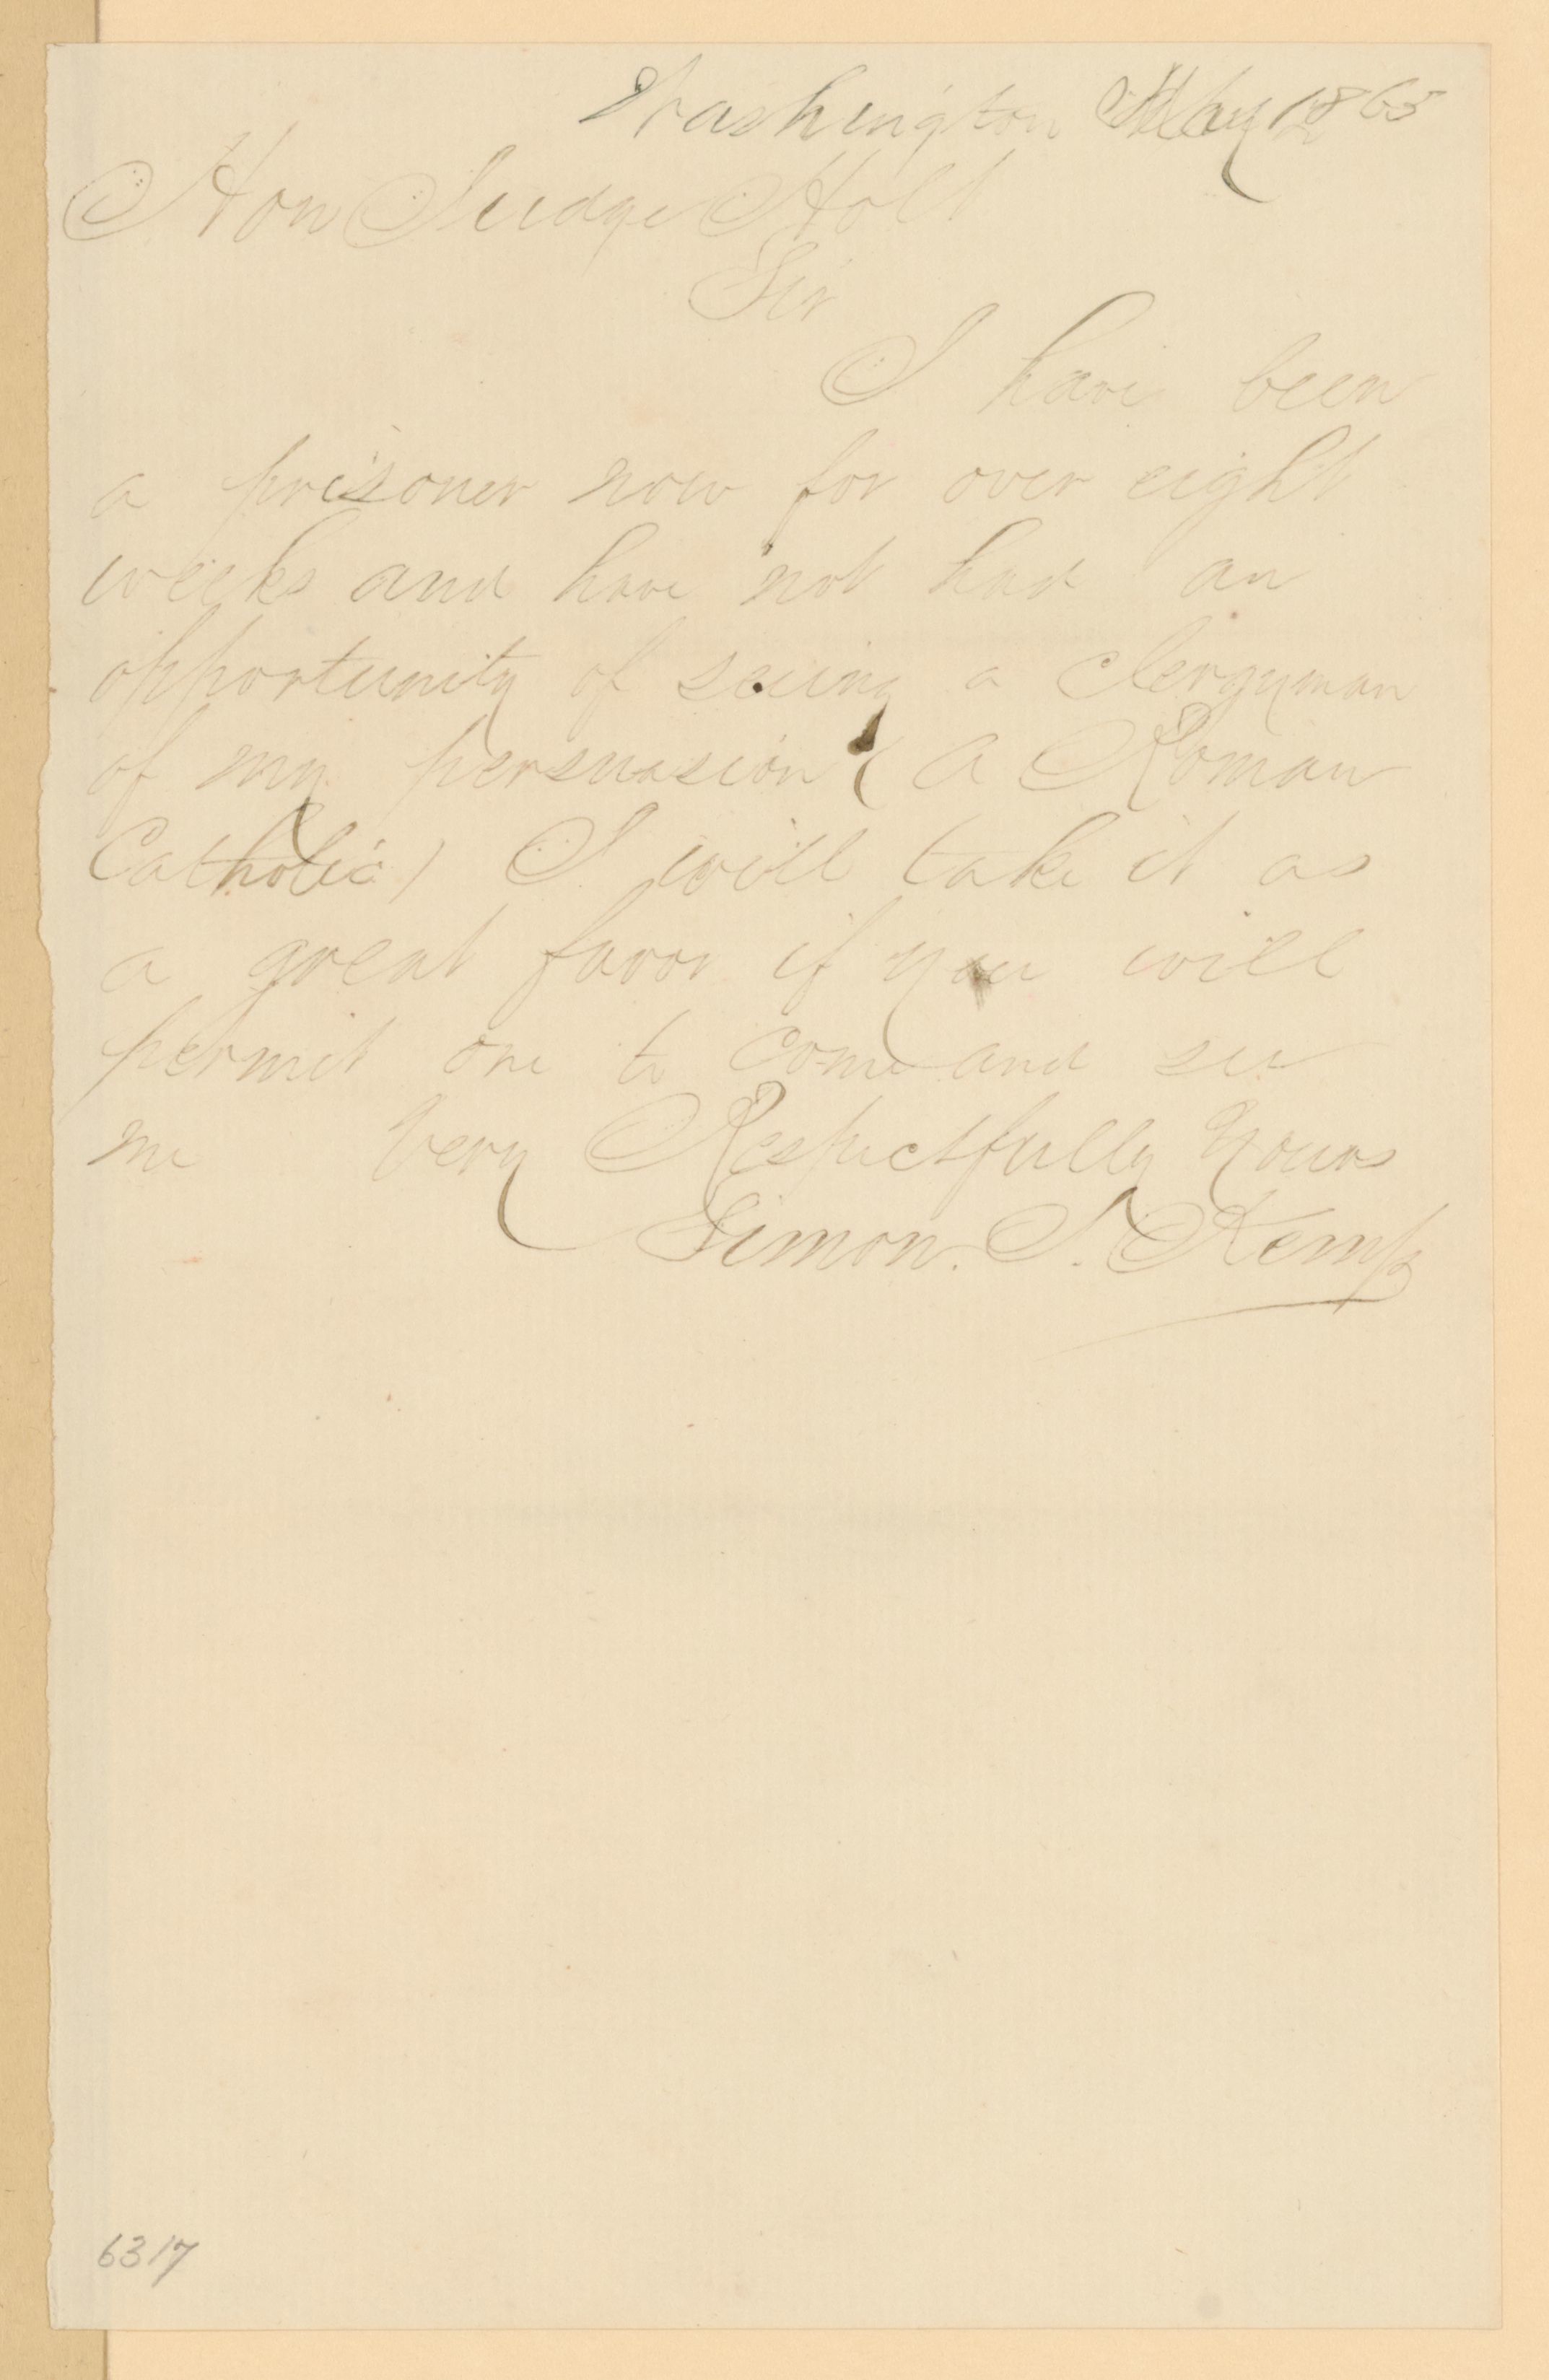 Washington May 1865
Hon Judge Holt
Sir
I have been
a prisoner now for over eight
weeks and have not had an
opportunity of seeing a clergyman
of my persuasion (a Roman
Catholic) I will take it as
a great favor if you will
permit one to come and see
me Very Respectfully Yours
Simon. S. Kemp
6317